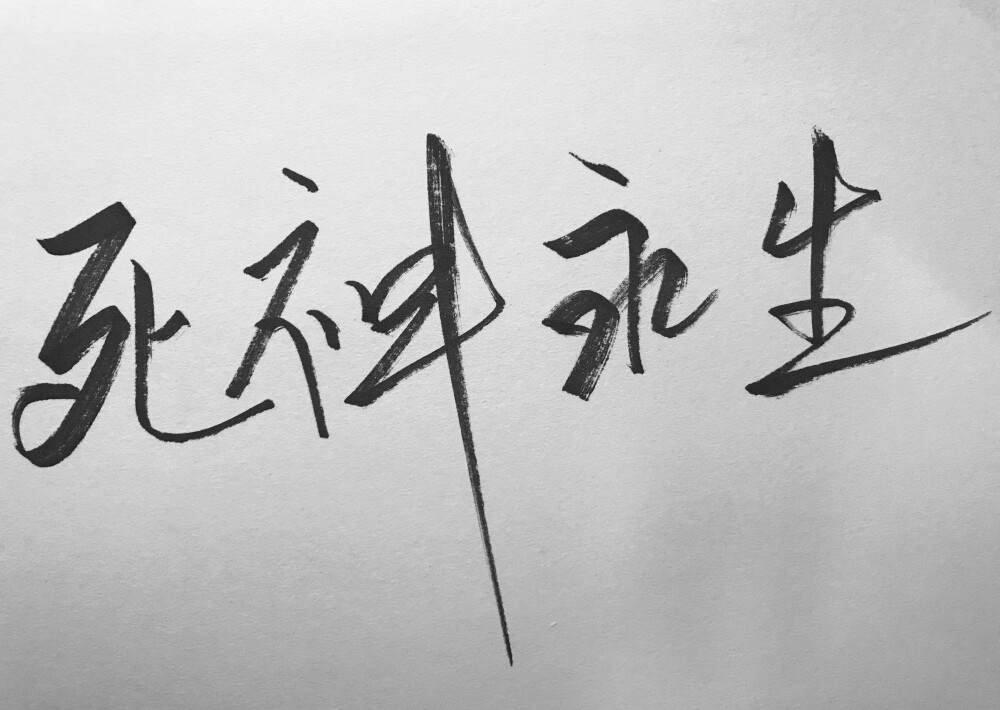 死神永生